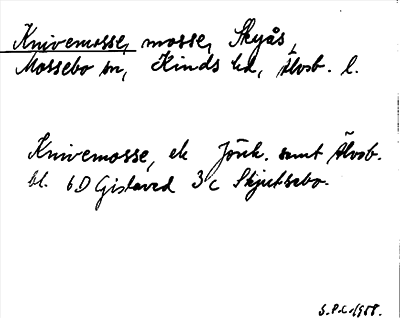 Knivemosse, mosse, Skyås,
Mossebo sn, Kinds hd, Älvsb. l.
Knivemosse, ek Jönk. samt Älvsb.
bl. 6D Gislaved 3c Skjutsebo.
1958